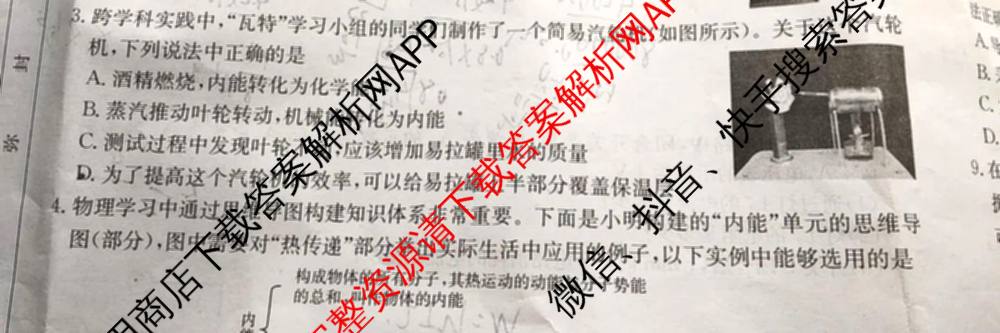 3. 跨学科实践中，“瓦特”学习小组的同学们制作了一个简易汽轮机（如图所示）。关于 汽轮
机，下列说法中正确的是
A. 酒精燃烧，内能转化为化学
B. 蒸汽推动叶轮转动，机械 化为内能
C. 测试过程中发现叶轮 ，应该增加易拉罐里 的质量
D. 为了提高这个汽轮 效率，可以给易拉罐 半部分覆盖保温
4. 物理学习中通过思 图构建知识体系非常重要。下面是小明构建的“内能”单元的思维导
图（部分），图中需要对“热传递”部分 实际生活中应用的例子，以下实例中能够选用的是
构成物体的所有分子，其热运动的动能 分子势能
的总和，叫作物体的内能
内
封
弥
法正
A.
B.
C.
D.
9. 在
用商店下载答案解析网APP
完整资源请下载答案解析网APP
微信、抖音、快手搜索答案